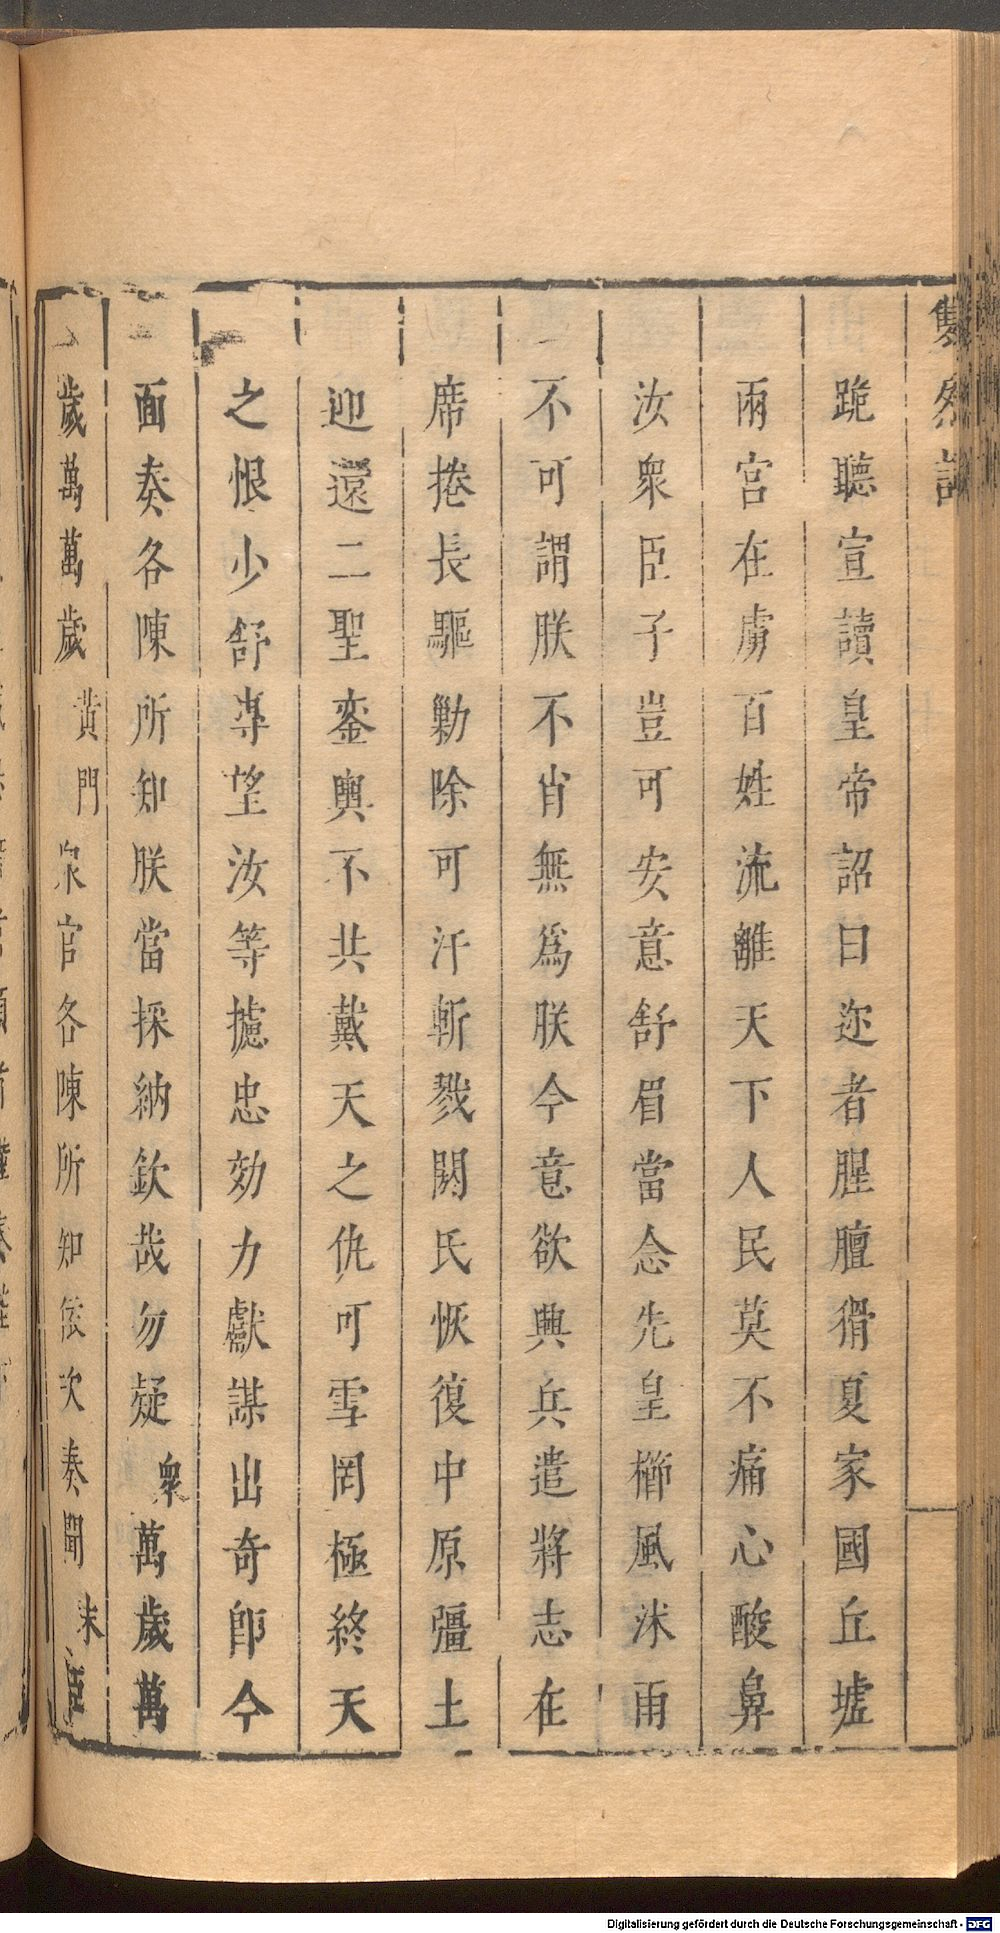 跪聽宣讀皇帝詔曰迩者腥膻猾夏家國丘墟
兩宮在虜百姓流離天下人民莫不痛心酸鼻
汝衆臣子豈可安意舒眉當念先皇櫛風沐雨
不可謂朕不肖無爲朕今意欲興兵遣將志在
席捲長驅勦除可汗斬戮閼氏恢復中原彊土
迎還二聖鑾輿不共戴天之仇可雪罔極終天
之恨少舒專望汝等攄忠効力獻謀出奇卽今
面奏各陳所知朕當採納欽哉勿疑衆萬歲萬
歲萬萬歲黃門衆官各陳所知依次奏聞末臣
Digitalisierung gefördert durch die Deutsche Forschungsgemeinschaft - DFG